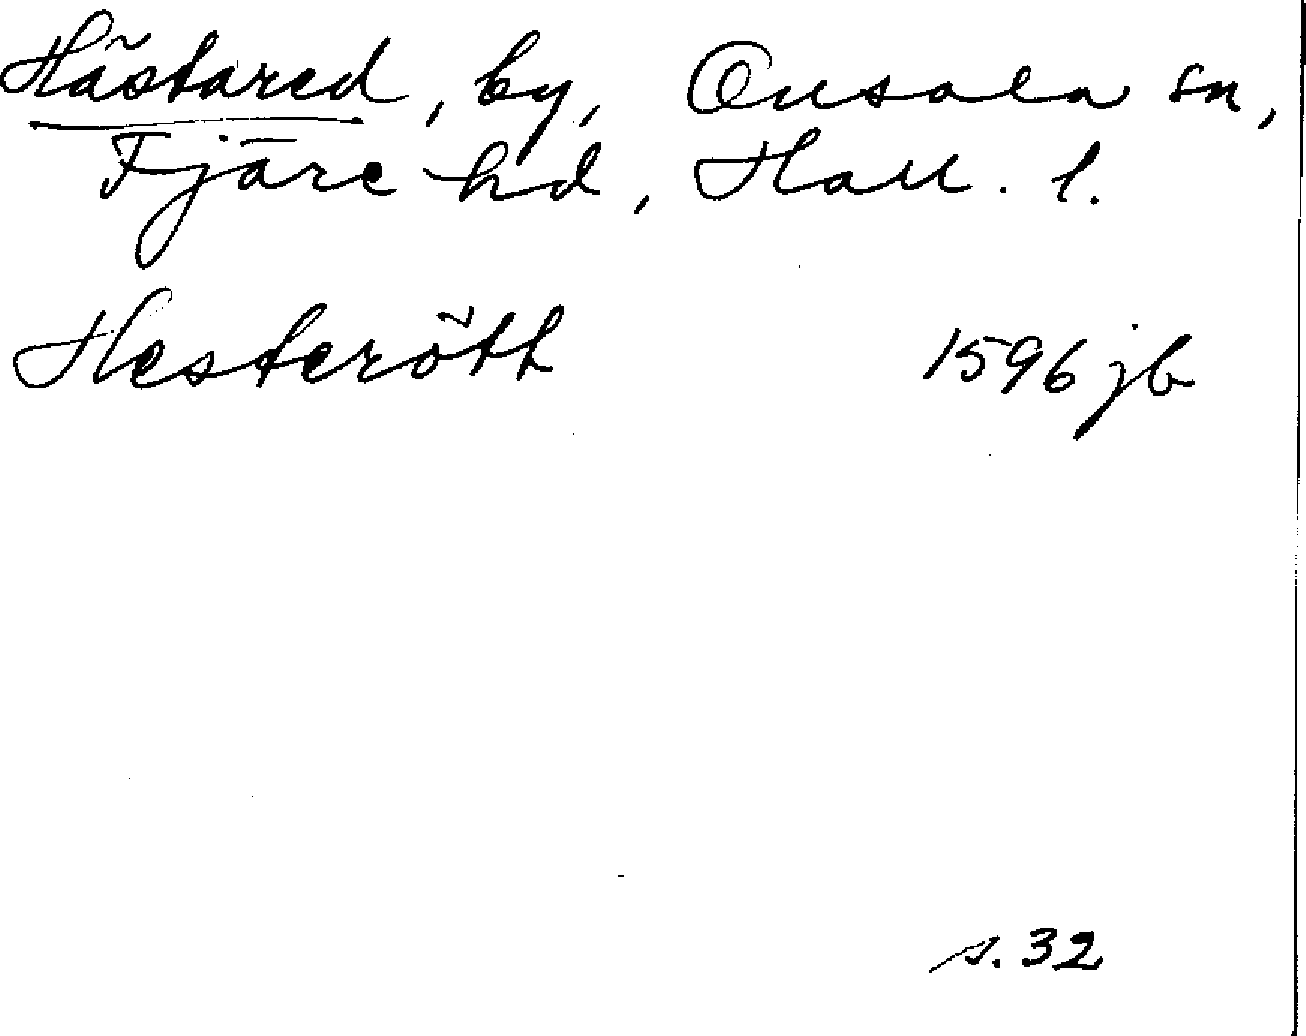 Hästared, by, Onsala sn,
Fjäre hd, Hall. l.
Hesteröth 1596 jb
s. 32